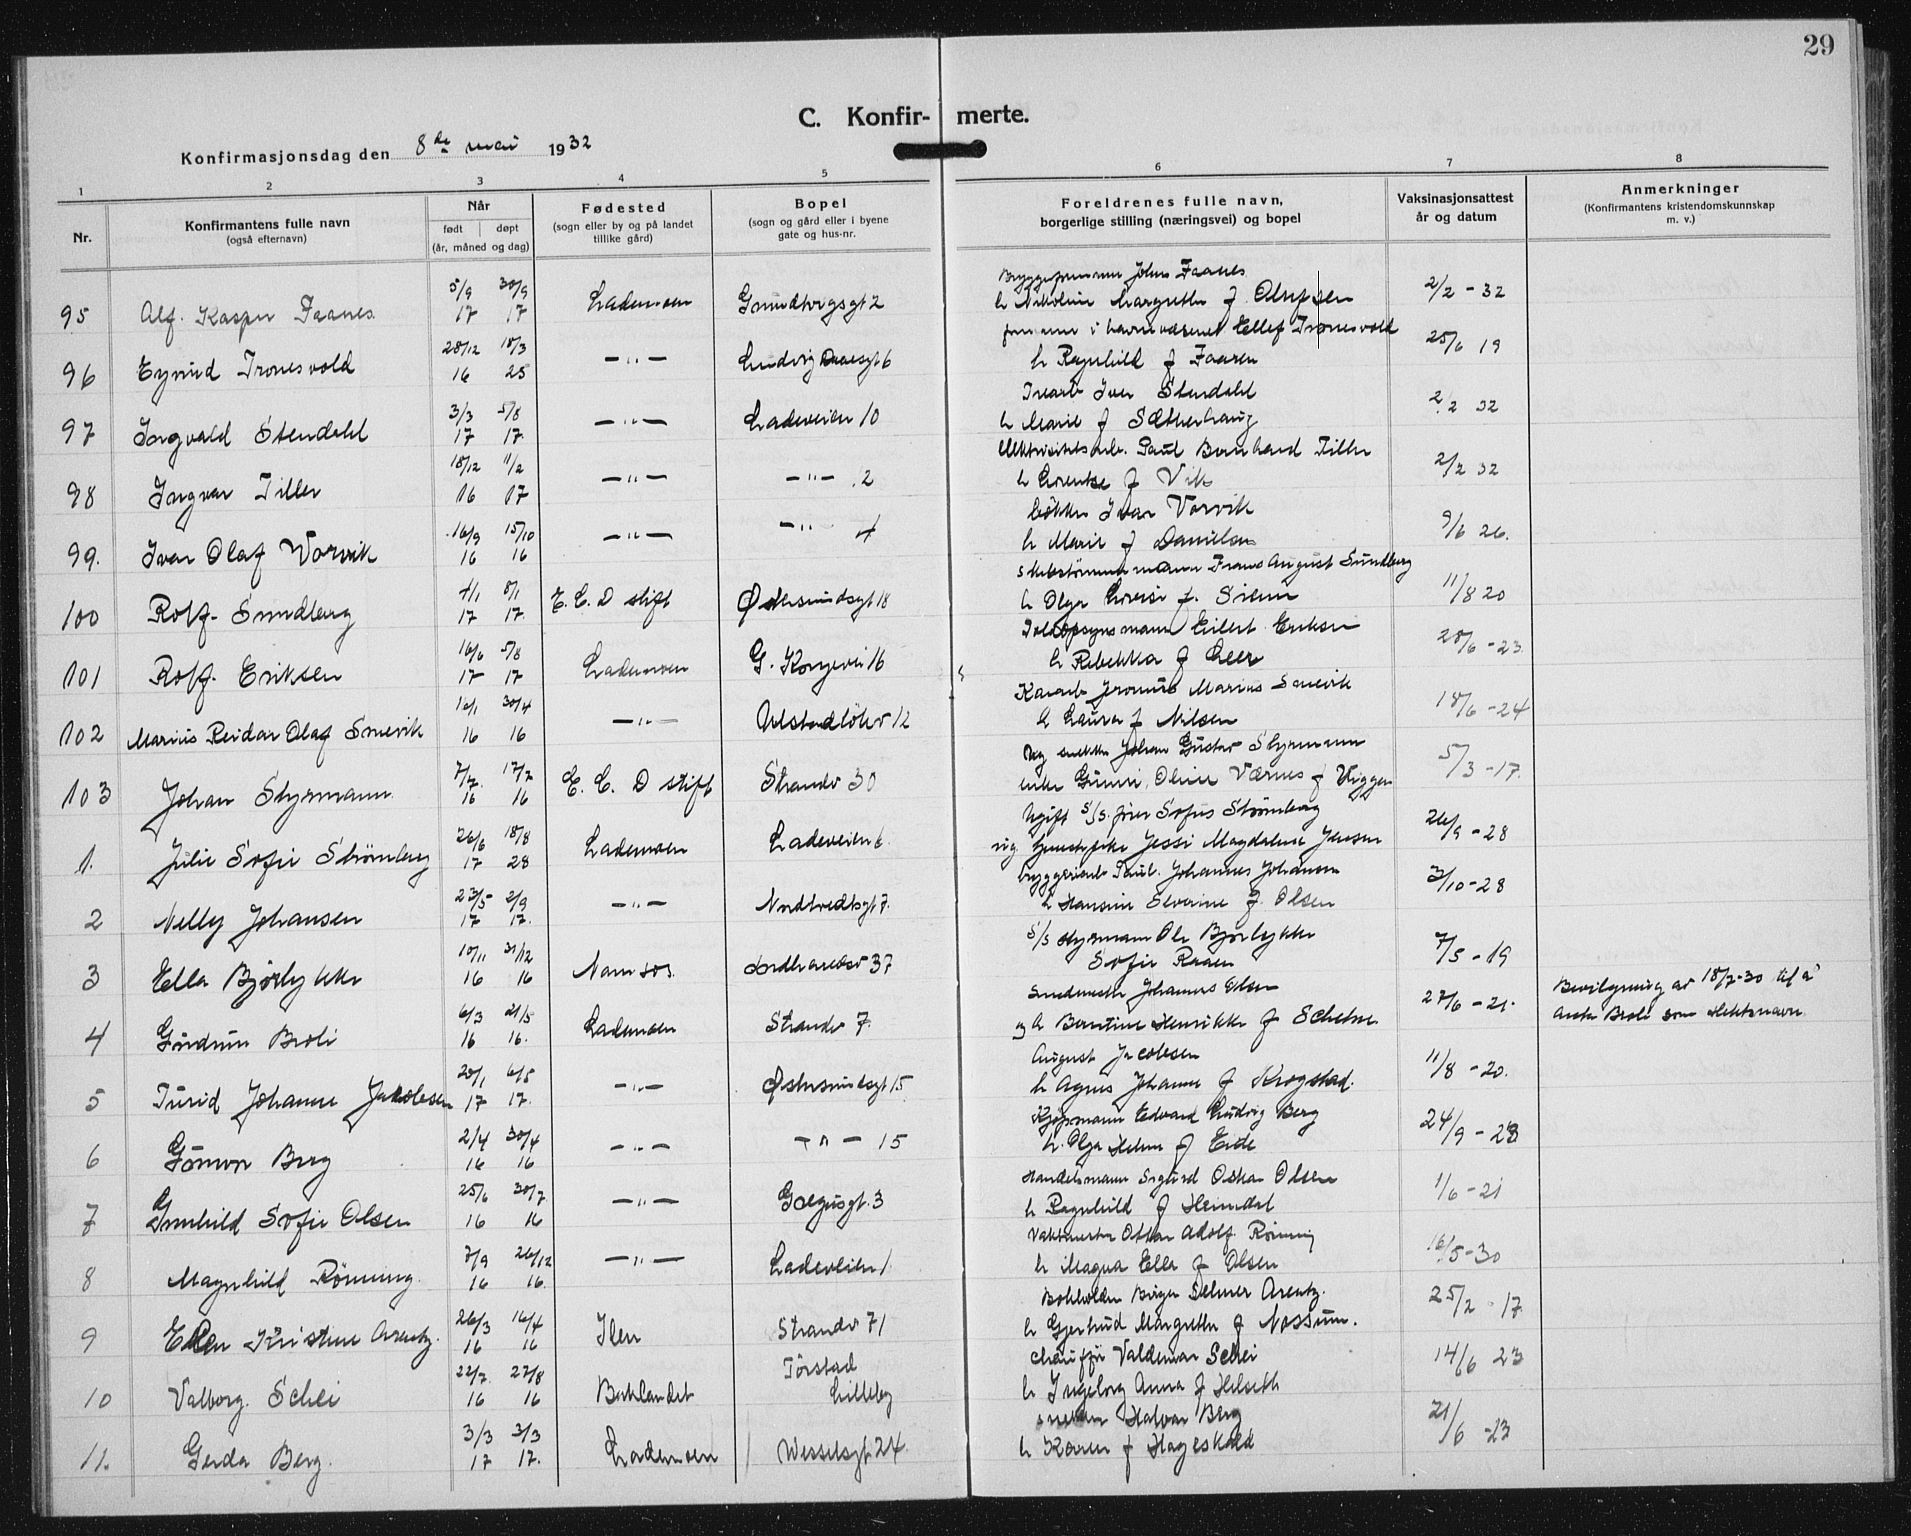 29
C. Konfir- merte.
Konfirmasjonsdag den 8de mai 1932
1 2 3 4 5 6 7 8
Nr. Konfirmantens fulle navn (også efternavn) Når født døpt (år, måned og dag) Fødested (sogn eller by og på landet tillike gård) Bopel (sogn og gård eller i byene gate og hus-nr.) Foreldrenes fulle navn, borgerlige stilling (næringsvei) og bopel Vaksinasjonsattest år og datum Anmerkninger (Konfirmantens kristendomskunnskap m. v.)
Johan Faanes
95 Alf. Kasper Faanes 5/9 17 30/9 17 Lademoen 2 h Nikoline Margrethe f. 2/2 - 32
formann i havnevæsenet Ellef Tronesvold
96 Eyvind Tronesvold 28/12 16 18/3 25 — " — Ludvig Daaesgt 6 h Ragnhild f Faaren 25/6 19
Iver Stendahl
97 Ingvald Stendahl 3/3 17 5/8 17 — " — Ladeveien 10 h Marie f Sætherhaug 2/2 32
Elektrisitetsarb. Paul Bernhard Tiller
98 Ingvar Tiller 18/12 16 11/2 17 — " — — " — 2 h Lorentse f Vik 2/2 32
Bøkker Ivar Vorvik
99. Ivar Olaf Vorvik 16/9 16 15/10 16 — " — — " — 4 h Marie f Danielsen 9/6 26.
Skibstømmermann Frans August Sundberg
100 Rolf Sundberg 4/1 17 8/1 17 E. C. D stift Østersundsgt 18 h Olga f. 11/8 20
Tolopsynsmann Eilert Eriksen
101 Rolf Eriksen 16/6 17 5/8 17 Lademoen G. Kongevei 16 h Rebekka f Leer 28/6 - 23.
Marius Smevik
102 Marius Reidar Olaf Smevik 16/1 16 30/4 16 — " — 12 h Laura f Nilsen 18/6 - 24
Johan Gustav Styrmann
103 Johan Styrmann 7/7 16 17/7 16 E. C. D stift Strandv 30 enke Gunni Oline Værnes f Viggen 5/3 - 17.
Ugift S/S. fører Sofus Strømberg
1. Julie Sofie Strømberg 26/6 17 18/8 28 Lademoen Ladeveien 6 Jessi Magdalene Jensen 26/9 - 28
bryggeriarb Paul Johannes Johansen
2 Nelly Johansen 23/5 17 2/9 17. — " — 7. h Hansine Severine f. Olsen 3/10 - 28
S/S styrmann Ole Bjørlykke
3 Ella Bjørlykke 10/11 16 31/12 16 Namsos. 37 Sofie Raaen 7/5 - 19
Smedmester Johannes Olsen
4 Gudrun Broli 6/3 16 21/5 16. Lademoen Strandv 7. og h Berntine Henrikke f 27/6 - 21. Bevilgning av 18/7-30 til å anta Broli som slektsnavn
August Jacobsen
5 Turid Johanne Jakobsen 20/1 17 6/5 17. — " — Østersundsgt 15 h Agnes Johanne f Krogstad. 11/8 - 20.
Kjøpmann Edvard Ludvig Berg
6 Gunvor Berg 2/4 16 30/4 16 — " — — " — 15 h. Olga Helene f Eide 24/9 - 28
Handelsmann Sigurd Oskar Olsen
7 Gunhild Sofie Olsen 25/6 16 30/7 16 — " — 3 h Ragnhild f Heimdal 1/6 - 21
Vaktmester Ottar Adolf Rønning
8 Magnhild Rønning. 7/9 16 26/12 16. — " — Ladeveien 1 h Magna Ella f Olsen 16/5 - 30
Bokholder Birger Selmer Arentz.
9 Ellen Kristine Arentz. 26/3 16 16/4 16 Ilen Strandv 71 h Gjertrud Margrethe f Nossum. 25/2 - 17
Chauffør Valdemar Schei
10 Valborg Schei 22/7. 16 27/8 16 Baklandet Torstad Lilleby h Ingeborg Anna f Helseth 14/6 23
Halvor Berg
11. Gerda Berg. 3/3 17 3/3 17. Lademoen Wesselsgt 24. h Karen f Hageskald 21/6 - 23